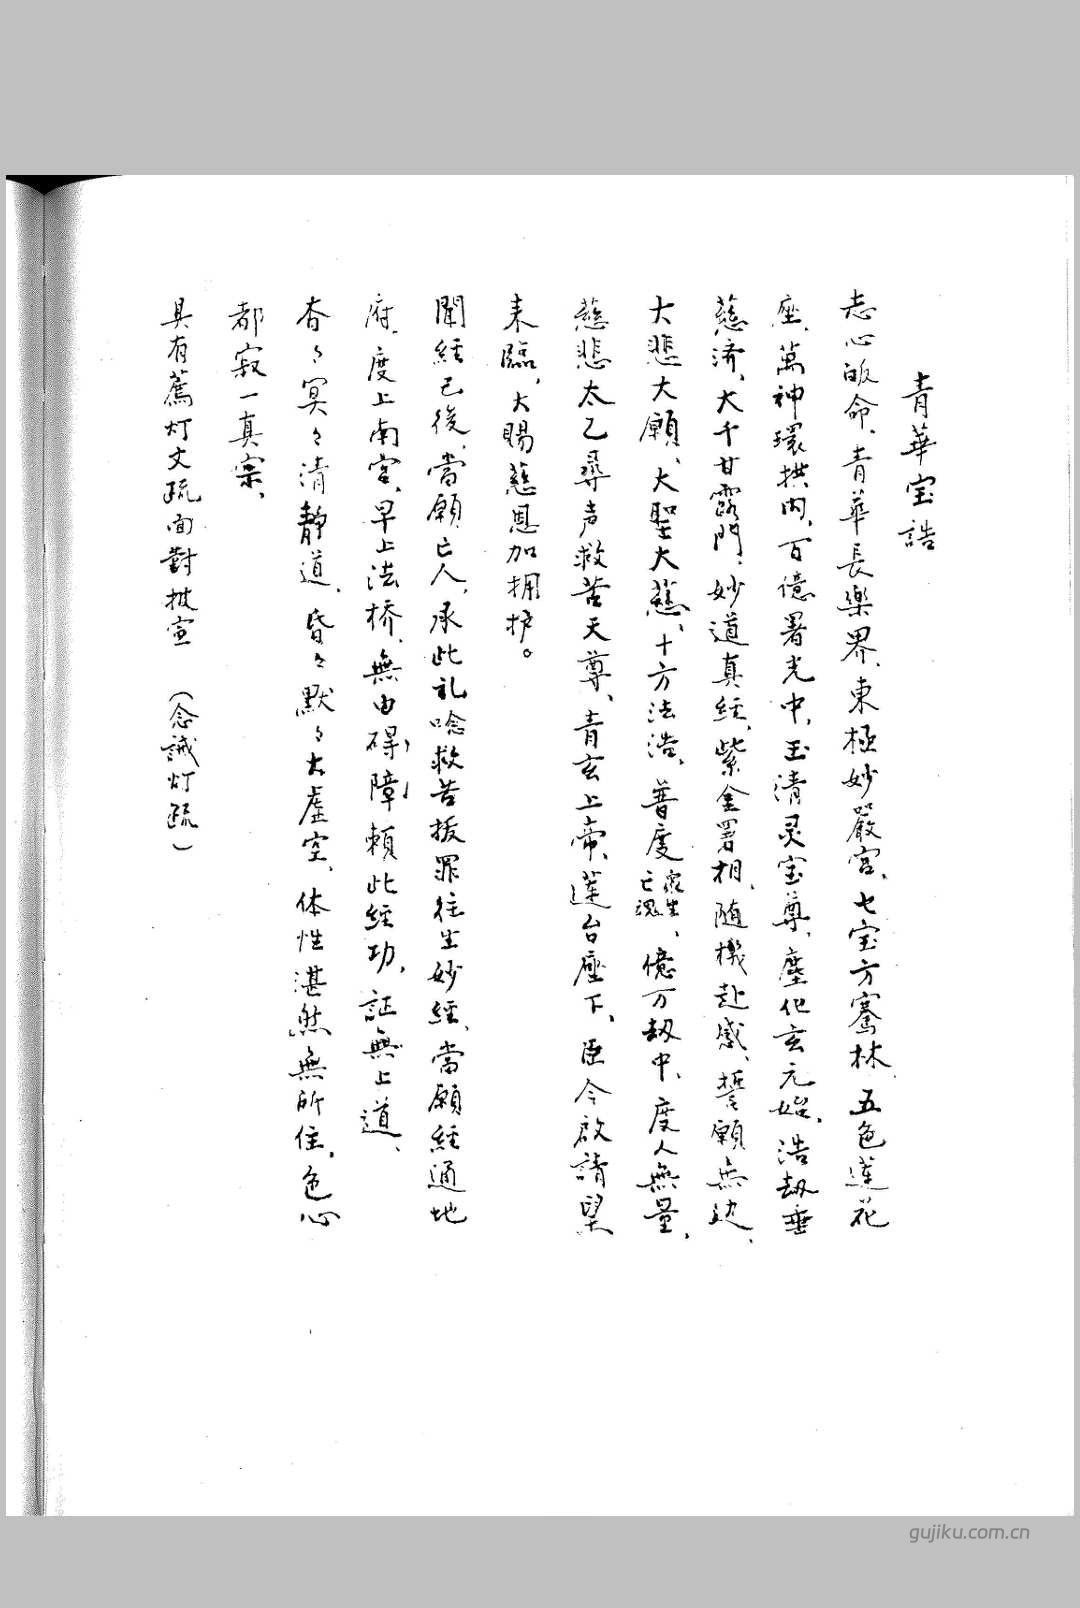 青華宝誥
志心皈命、青華長樂界、東極妙嚴宮、七宝方騫林、五色蓮花
座、萬神環拱内、百億署光中、玉清灵宝尊、塵化玄元始、浩劫垂
慈济、大千甘露門、妙道真経、紫金署相、随機赴感、誓願無边、
大悲大願、大聖大慈、十方法浩、普度衆生亡魂、億万劫中、度人無量、
慈悲太乙尋声救苦天尊、青玄上帝、蓮台座下、臣今啟請望
来臨、大賜慈恩加拥护。
聞経已後、當願亡人、承此礼唸救苦拔罪往生妙経、當願経通地
府、度上南宮、早上法桥、無由碍障、頼此経功、証無上道、
杳々冥々清靜道、昏々默々太虛空、体性湛然無所住、色心
都寂一真宗、
具有薦灯文疏面對披宣 （念誠灯疏）
gujiku.com.cn